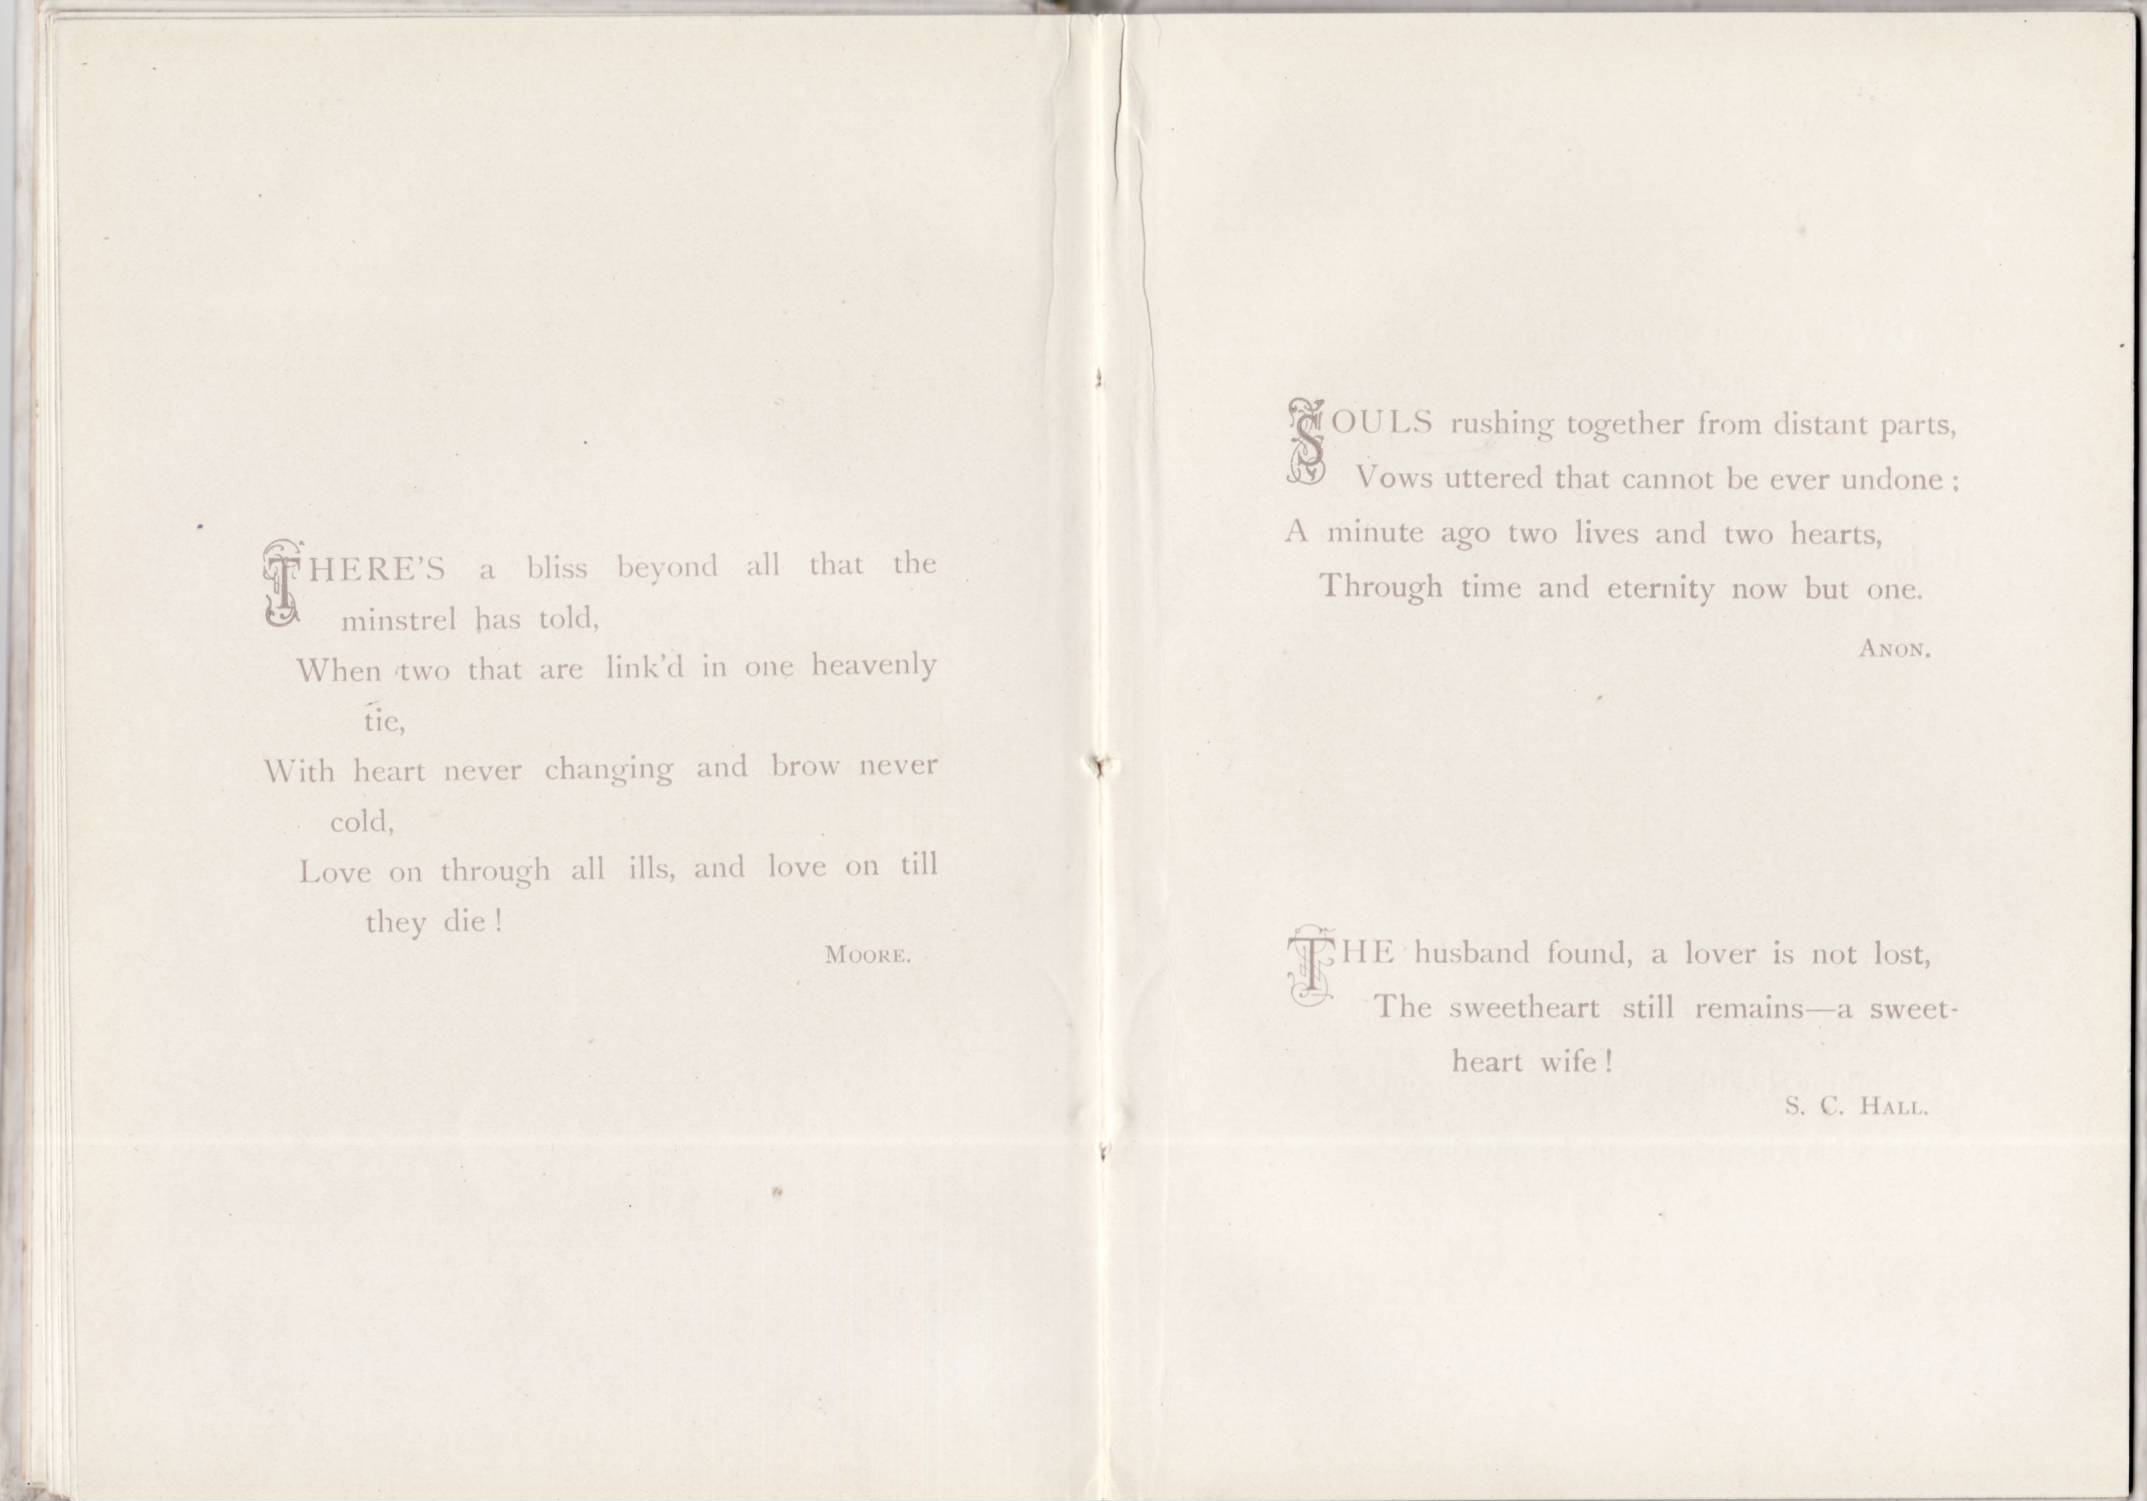 THERE'S a bliss beyond all that the
minstrel has told,
When two that are link'd in one heavenly
tie,
With heart never changing and brow never
cold,
Love on through all ills, and love on till
they die !
MOORE.
SOULS rushing together from distant parts,
Vows uttered that cannot be ever undone ;
A minute ago two lives and two hearts,
Through time and eternity now but one.
ANON.
THE husband found, a lover is not lost,
The sweetheart still remains—a sweet-
heart wife !
S. C. HALL.